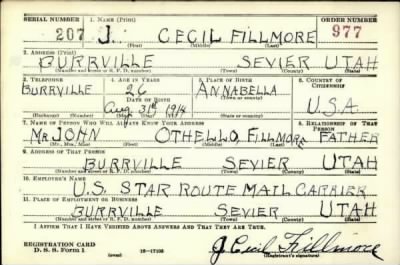 SERIAL NUMBER 1. NAME (Print) ORDER NUMBER
207 J. CECIL FILLMORE 977
(First) (Middle) (Last)
2. ADDRESS (Print)
BURRVILLE SEVIER UTAH
(Number and street or R. F. D. number) (Town) (County) (State)
3. TELEPHONE 4. AGE IN YEARS 5. PLACE OF BIRTH 6. COUNTRY OF CITIZENSHIP
BURRVILLE 26 ANNABELLA
DATE OF BIRTH (Town or county)
Aug. 31st 1914 U.S.A.
(Exchange) (Number) (Mo.) (Day) (Yr.) (State or country)
7. NAME OF PERSON WHO WILL ALWAYS KNOW YOUR ADDRESS 8. RELATIONSHIP OF THAT PERSON
MR. JOHN OTHELLO, FILLMORE FATHER
(Mr., Mrs., Miss) (First) (Middle) (Last)
9. ADDRESS OF THAT PERSON
BURRVILLE SEVIER UTAH
(Number and street or R. F. D. number) (Town) (County) (State)
10. EMPLOYER'S NAME
U.S. STAR ROUTE MAIL CARRIER
11. PLACE OF EMPLOYMENT OR BUSINESS
BURRVILLE SEVIER UTAH
(Number and street or R. F. D. number) (Town) (County) (State)
I AFFIRM THAT I HAVE VERIFIED ABOVE ANSWERS AND THAT THEY ARE TRUE.
REGISTRATION CARD
D. S. S. Form 1 J. Cecil Fillmore
(over) (Registrant's signature)